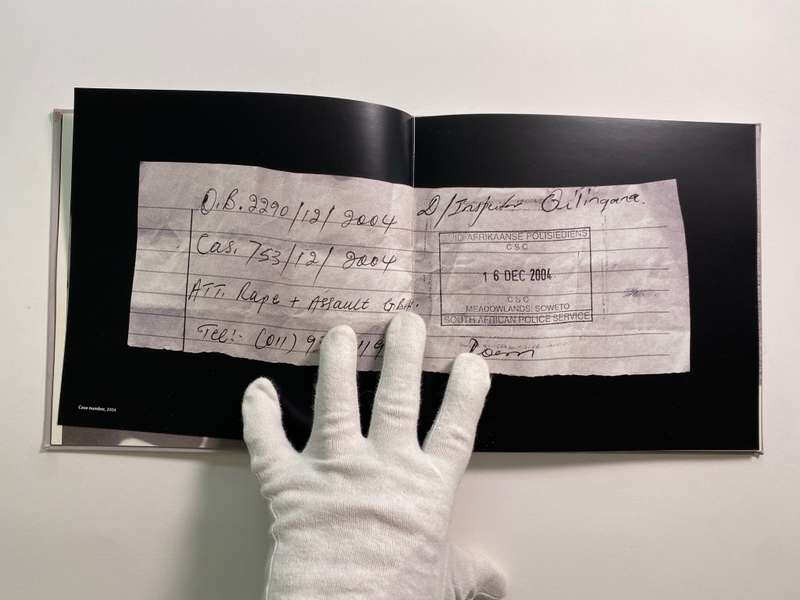 O.B. 2290/12/2004
Cas. 753/12/2004
ATT. Rape + Assault GBH.
Tel:- (011) 9
D/Inspector
SUID-AFRIKAANSE POLISIEDIENS
CSC
16 DEC 2004
CSC
MEADOWLANDS, SOWETO
SOUTH AFRICAN POLICE SERVICE
Case number, 2004